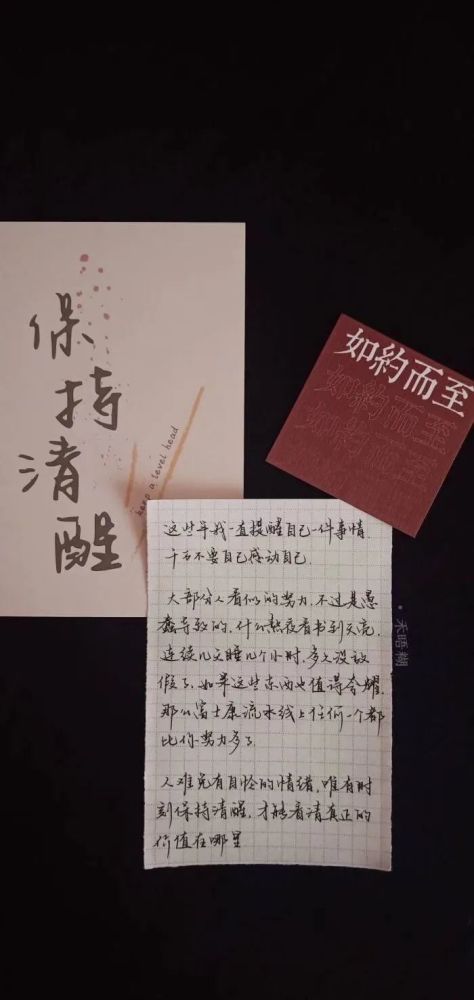 保
持
清
醒
keep a level head
如約而至
如約而至
如約而至
这些年我一直提醒自己一件事情
千万不要自己感动自己.
大部分人看似的努力,不过是愚
蠢导致的,什么熬夜看书到天亮,
连续几天睡几个小时,多久没放
假了,如果这些东西也值得夸耀,
那么富士康流水线上任何一个都
比你努力多了.
人难免有自怜的情绪,唯有时
刻保持清醒,才能看清真正的
价值在哪里
·禾晤糊